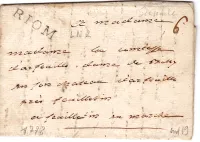 RIOM
a madame
6
madame la comtesse
d'arfeuille dame de
en son chateau d'arfeuille
près feuilletin
a feuilletin en marche